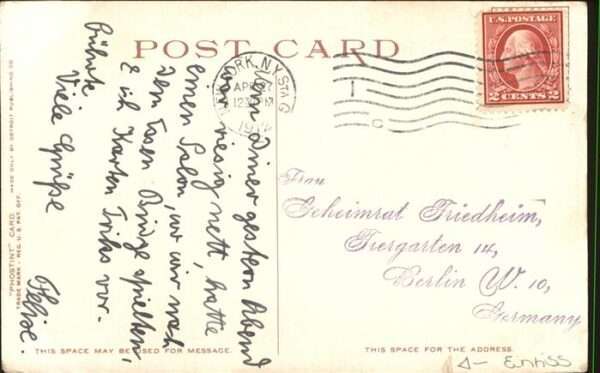 POST CARD
U.S. POSTAGE
2 CENTS 2
NEW YORK, N.Y. STA G
Diner gestern Abend
war riesig nett, hatte
einen Salon, wo wir nach
dem Essen Bridge spielten,
& ich Karten Tricks vor-
führte
Viele Grüße
Felix.
Frau
Geheimrat Friedheim,
Tiergarten 14,
Berlin W. 10,
Germany
"PHOSTINT" CARD
TRADE MARK - REG. U.S. PAT. OFF.
MADE ONLY BY DETROIT PUBLISHING CO.
THIS SPACE MAY BE USED FOR MESSAGE.
THIS SPACE FOR THE ADDRESS.